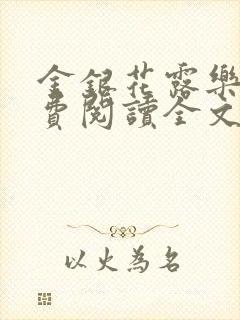 金銀花露樂
費閱讀全文
以火為名